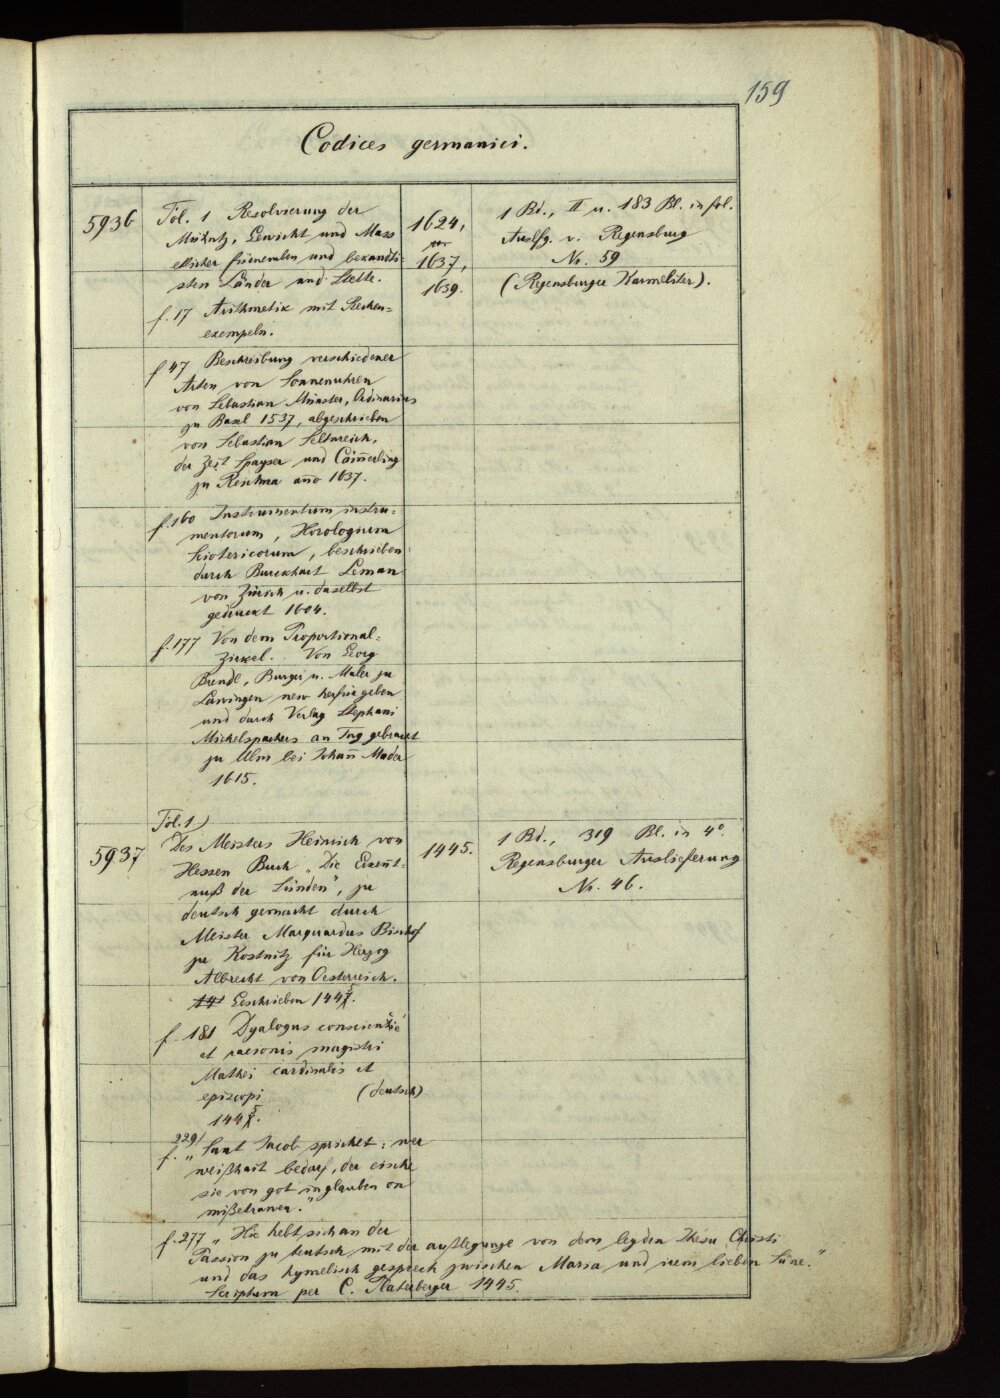 159
Codices germanici.
5936
Fol. 1 Resolvierung der
Müntz, Gewicht und Mass
etlicher fürnemben und bekandti-
sten Länder und Stette.
f. 17 Arithmetik mit Rechen=
exempeln.
f 47 Beschreibung verschiedener
Arten von Sonnenuhren
von Sebastian Münster, Ordinarius
zu Basel 1537, abgeschrieben
von Sebastian
der Zeit Spayser und Cam̄erling
zu anno 1637.
f. 160 Instrumentum instru-
mentorum, Horologium
Sciotericorum, beschrieben
durch Burckhart Leman
von Zürich u. daselbst
gedruckt 1604.
f. 177 Von dem Proportional=
Zirkel. Von Georg
Brendl, Burger u. Maler zu
Lawingen new herfür geben
und durch Verlag Stephani
Michelspachers an Tag gebracht
zu Ulm bei Johan̄ Meder
1615.
1624,
1637,
1639.
1 Bd., II u. 183 Bl. in fol.
Auslfg. v. Regensburg
Nr. 59
(Regensburger Karmeliter).
5937
Fol. 1)
Des Meisters Heinrich von
Hessen Buch „Die Erkent-
nuß der Sünden", zu
deutsch gemacht durch
Meister Marquardus Bischof
zu Kostnitz für Herzog
Albrecht von Oesterreich.
Geschrieben 1445.
f. 181 Dyalogus conscientie
et racionis magistri
Mathei cardinalis et
episcopi (deutsch)
1445.
f. 229) „Sant Jacob sprichet: wer
weißhait bedarf, der eische
sie von got in glauben on
mißetrawen."
f. 277 „Hie hebt sich an der
Passion zu teutsch mit der außlegunge von dem leyden Jhesu Christi
und das hymelisch gesprech zwischen Maria und irem lieben Süne."
Scriptum per C. Raterberger 1445.
1445.
1 Bd., 319 Bl. in 4°.
Regensburger Auslieferung
Nr. 46.